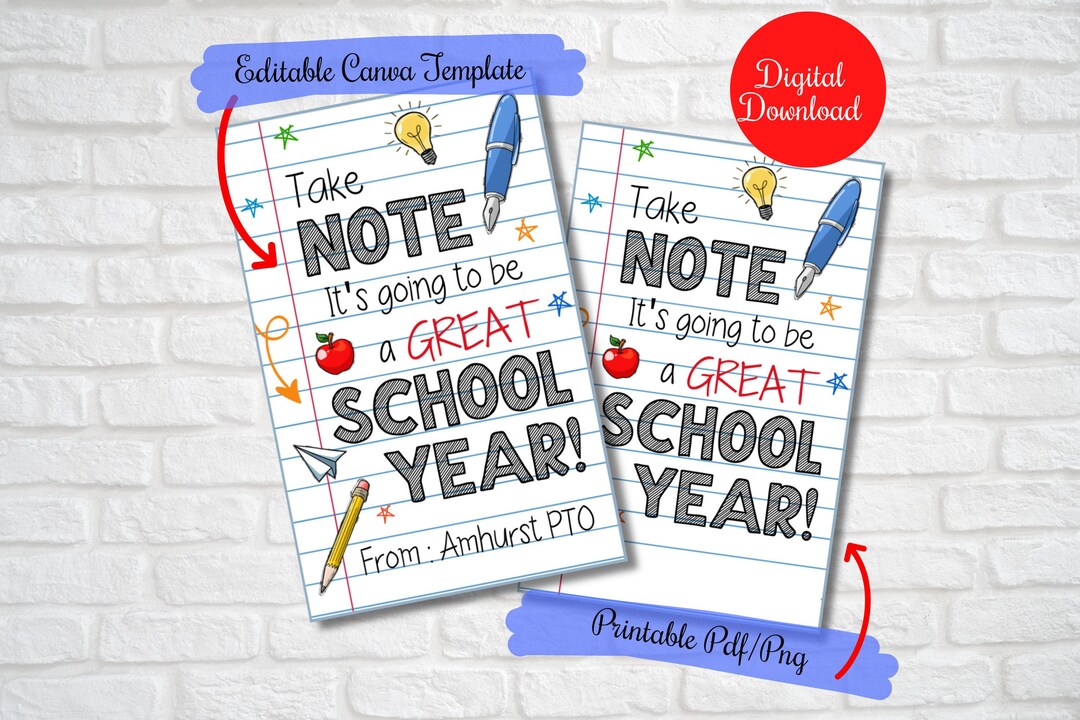 Editable Canva Template
Digital
Download
Take
NOTE
It's going to be
a GREAT
SCHOOL
YEAR!
From : Amhurst PTO
Take
NOTE
It's going to be
a GREAT
SCHOOL
YEAR!
Printable Pdf/Png